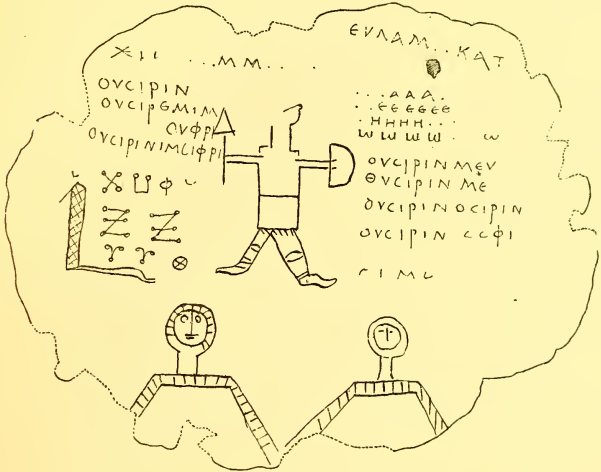 ΧΙΙ ...ΜΜ....
ΟΥCΙΡΙΝ
ΟΥCΙΡΕΜΙΜ
ΟΥΦΡΙ
ΟΥCΙΡΙΝΙΜCΙΦΡΙ
ΕΥΛΑΜ..ΚΑΤ
...ΑΑΑ.
..ΕΕΕΕΕΕ
.ΗΗΗΗ...
ωωωω. ω
ΟΥCΙΡΙΝΜΕΥ
ΘΥCΙΡΙΝ ΜΕ
ΟΥCΙΡΙΝΟCΙΡΙΝ
ΟΥCΙΡΙΝ CCΦΙ